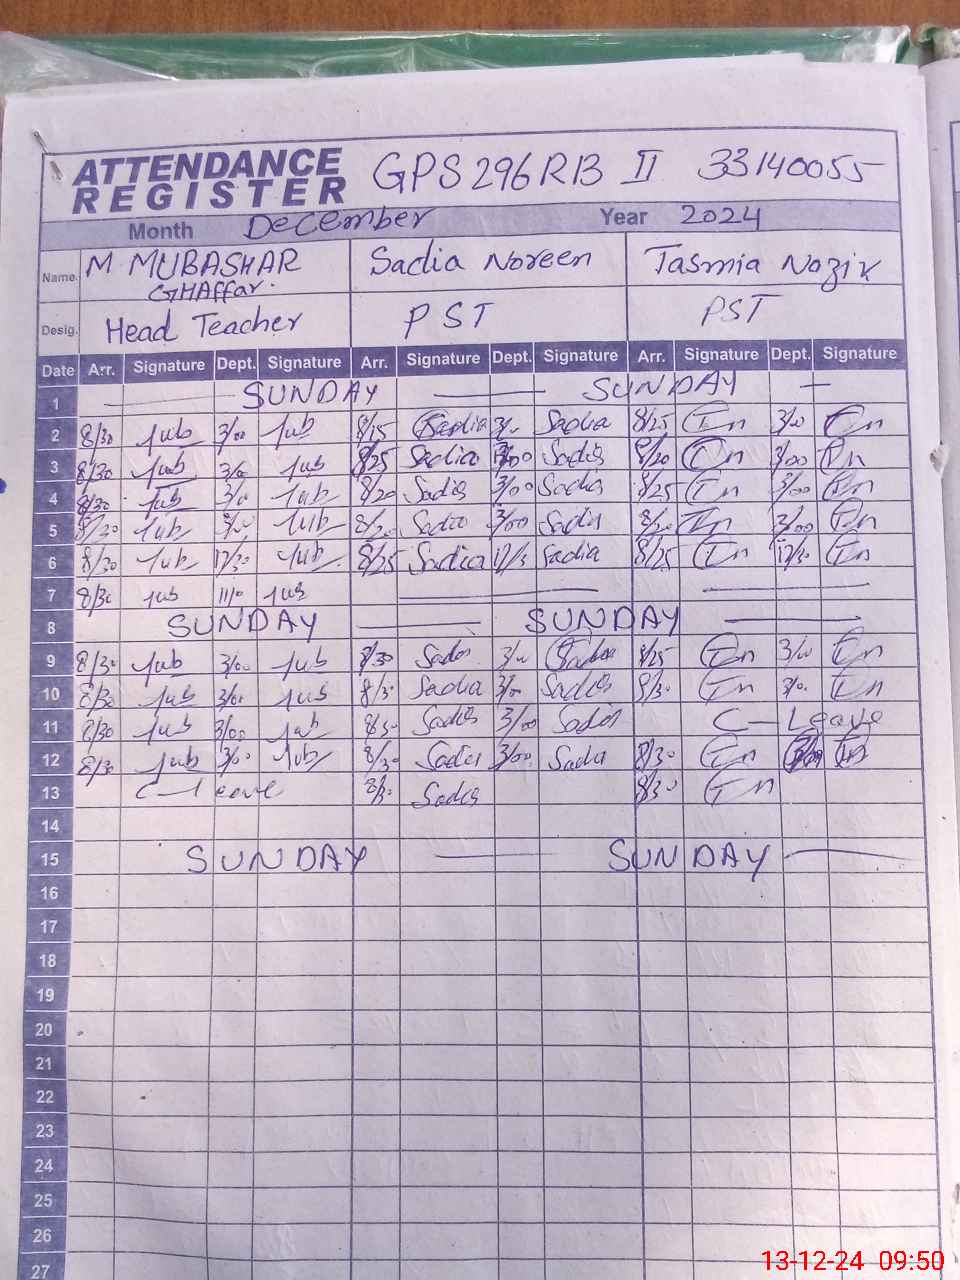 ATTENDANCE REGISTER GPS 296 RB II 33140055
Month December Year 2024
Name. M MUBASHAR GHAffar. Sadia Noreen Tasmia Nazir
Desig. Head Teacher PST PST
Date Arr. Signature Dept. Signature Arr. Signature Dept. Signature Arr. Signature Dept. Signature
1 SUNDAY SUNDAY
2 8/30 Mub 3/00 Mub 8/25 Sadia 3/00 Sadia 8/25 Tn 3/00 Tn
3 8/30 Mub 3/00 Mub 8/25 Sadia 3/00 Sadia 8/20 Tn 3/00 Tn
4 8/30 Mub 3/00 Mub 8/20 Sadia 3/00 Sadia 8/25 Tn 3/00 Tn
5 8/30 Mub 3/00 Mub 8/20 Sadia 3/00 Sadia 8/20 Tn 3/00 Tn
6 8/30 Mub 12/30 Mub 8/25 Sadia 12/3 Sadia 8/25 Tn 12/30 Tn
7 8/30 Mub Mub
8 SUNDAY SUNDAY
9 8/30 Mub 3/00 Mub 8/30 Sadia 3/00 Sadia 8/25 Tn 3/00 Tn
10 8/30 Mub 3/00 Mub 8/30 Sadia 3/00 Sadia 8/30 Tn 3/0. Tn
11 8/30 Mub 3/00 Mub 8/30 Sadia 3/00 Sadia C-Leave
12 8/30 Mub 3/00 Mub 8/30 Sadia 3/00 Sadia 8/30 Tn 3/00 Tn
13 C-Leave 8/30 Sadia 8/30 Tn
14
15 SUNDAY SUNDAY
16
17
18
19
20
21
22
23
24
25
26
27
13-12-24 09:50